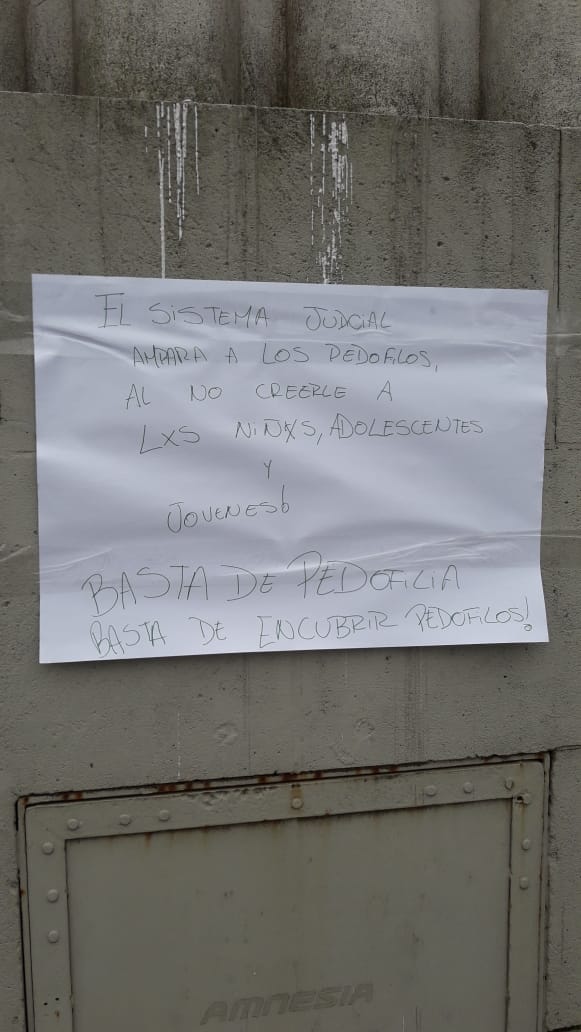 EL SISTEMA JUDCIAL
AMPARA A LOS PEDOFILOS,
AL NO CREERLE A
LXS NIÑXS, ADOLESCENTES
Y
JOVENES
BASTA DE PEDOFILIA
BASTA DE ENCUBRIR PEDOFILOS!
AMNESIA